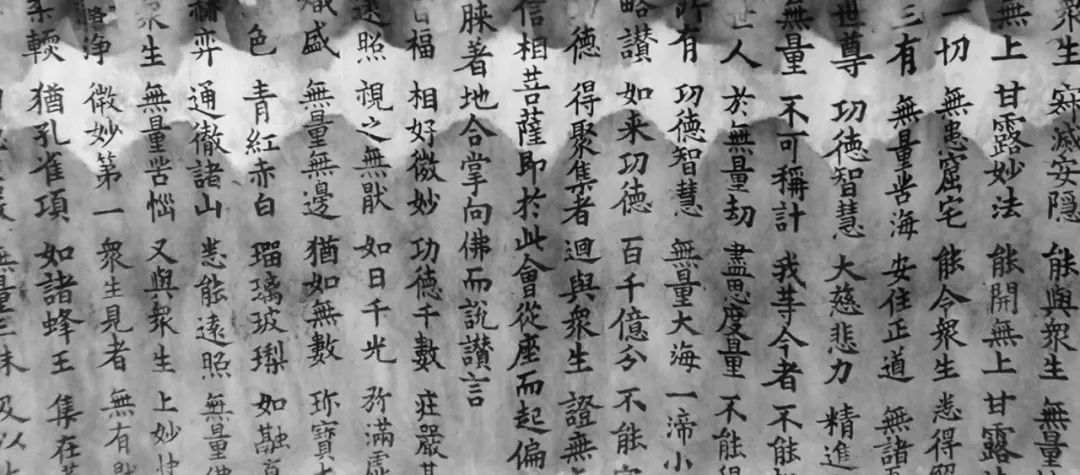 眾生 寂滅安隱 能與眾生 無量
無上 甘露妙法 能開無上 甘露
一切 無患窟宅 能令眾生 悉得
三有 無量苦海 安住正道 無諸
世尊 功德智慧 大慈悲力 精進
無量 不可稱計 我等今者 不能
世人 於無量劫 盡思度量 不能得
有 功德智慧 無量大海 一渧小
略讚 如来功德 百千億分 不能
德 得聚集者 迴與眾生 證無
信相菩薩即於此會從座而起偏
著地合掌向佛而說讚言
百福 相好微妙 功德千數 莊嚴其
遠照 視之無猒 如日千光 弥滿虛
熾盛 無量無邊 猶如無數 珎寶大
色 青紅赤白 瑠璃玻瓈 如融真
赫弈 通徹諸山 悉能遠照 無量佛
眾生 無量苦惱 又與眾生 上妙快
淨 微妙第一 眾生見者 無有猒
柔軟 猶孔雀項 如諸蜂王 集在
無量三